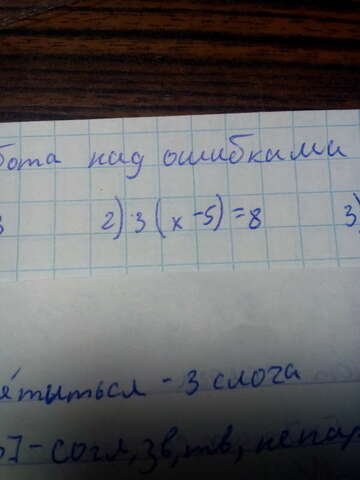 бота над ошибками
3 2) 3 (x - 5) = 8 3)
етыться - 3 слога
- согл, зв, тв, непар